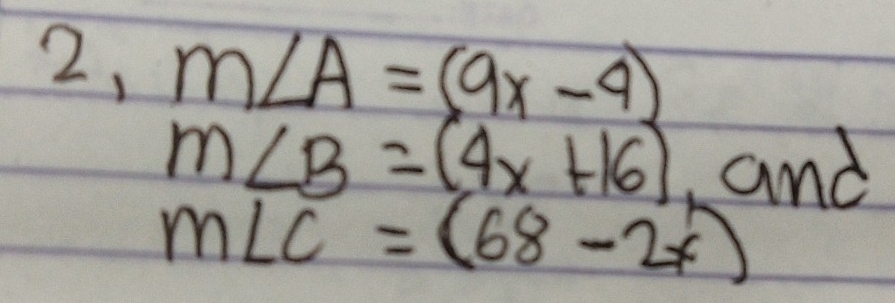 2, m∠A = (9x - 4)
m∠B = (4x + 16), and
m∠C = (68 - 2x)